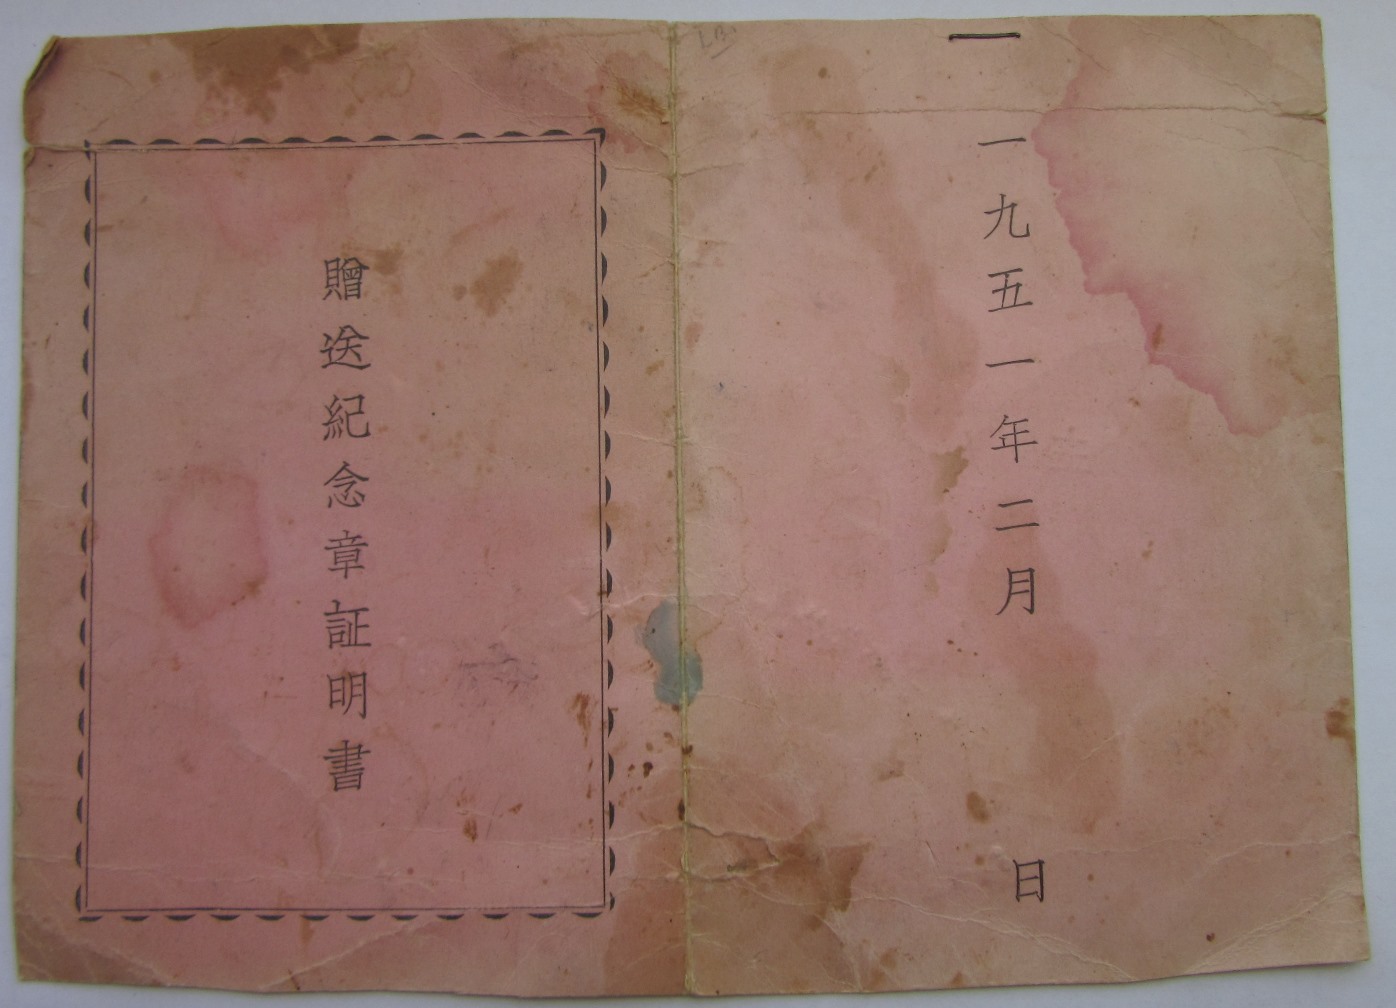 贈送紀念章証明書
一九五一年二月 日